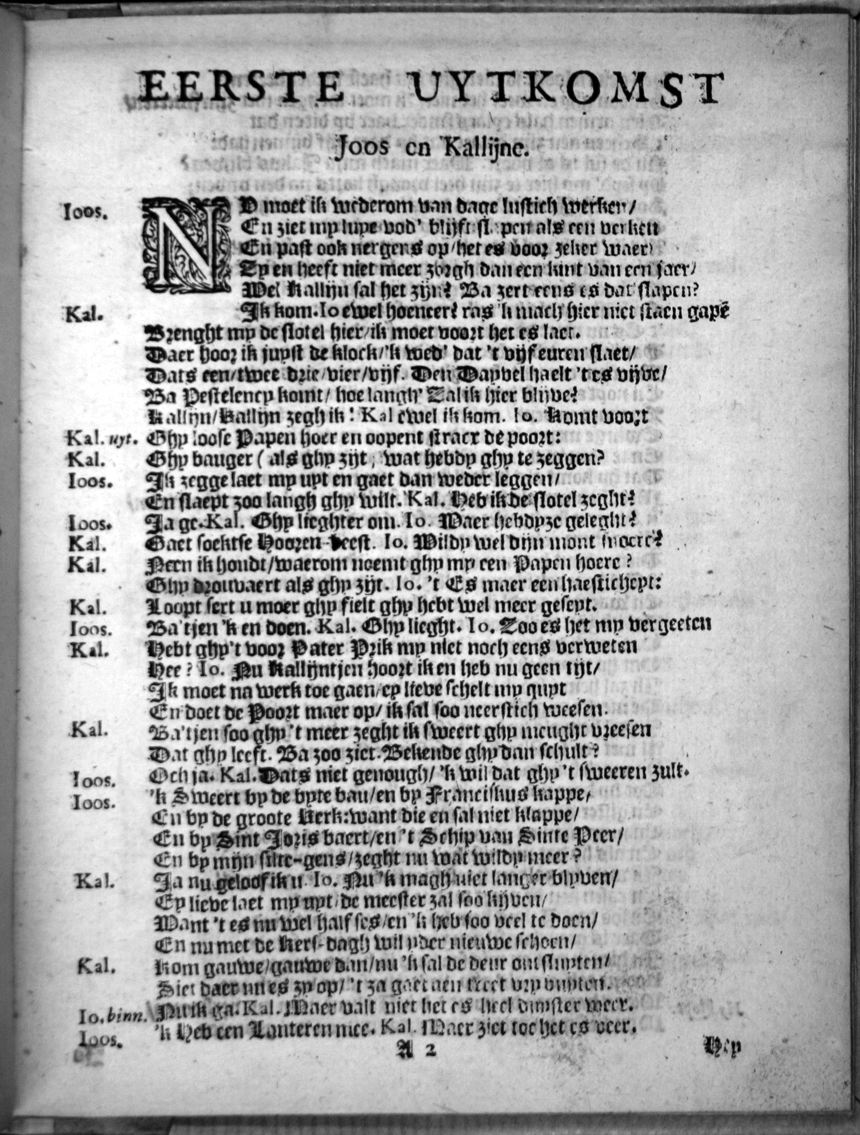 EERSTE UYTKOMST
Joos en Kallijne.
Ioos. NU moet ik wederom van dage lustich werken/
En ziet mp lupe vod' blijft slapen als een verken
En past ook nergens op/het es voor zeker waer/
Zy en heeft niet meer zorgh dan een kint van een jaer/
Wel Kallijn sal het zijn? Ba zert eens es dat slapen?
Kal. Ik kom. Io ewel hoeneer? ras 'k mach hier niet staen gapē
Brenght my de slotel hier/ik moet voort het es laet.
Daer hoor ik juyst de klock/'k wed' dat 't vijf euren slaet/
Dats een/twee drie/vier/vijf. Den Duyvel haelt 't es vijve/
Ba Pestelency komt/ hoe langh' Zal ik hier blijve?
Kallijn/Kallijn zegh ik! Kal ewel ik kom. Io. Komt voort
Kal. uyt. Ghy loose Papen hoer en oopent stracx de poort:
Kal. Ghy bauger (als ghy zyt, wat hebdy ghy te zeggen?
Ioos. Ik zegge laet my uyt en gaet dan weder leggen/
En slaept zoo langh ghy wilt. Kal. Heb ik de slotel zeght?
Ioos. Ja ge. Kal. Ghy lieghter om. Io. Maer hebdyze geleght?
Kal. Gaet soektse Hooren-beest. Io. Wildy wel dijn mont snoere?
Kal. Neen ik houdt/waerom noemt ghy my een Papen hoere?
Ghy drouvaert als ghy zijt. Io. 't Es maer een haestichept:
Kal. Loopt sert u moer ghy fielt ghy hebt wel meer geseyt.
Ioos. Ba'tjen 'k en doen. Kal. Ghy lieght. Io. Zoo es het my vergeeten
Kal. Hebt ghy't voor Pater Prik my niet noch eens verweten
Hee? Io. Nu Kallijntjen hoort ik en heb nu geen tijt/
Ik moet na werk toe gaen/ey lieve schelt my quyt
En doet de Poort maer op/ ik sal soo neerstich weesen.
Kal. Ba'tjen soo ghy 't meer zeght ik sweert ghy meught vreesen
Dat ghy leeft. Ba zoo ziet. Bekende ghy dan schult?
Ioos. Och ja. Kal. Dats niet genough/ 'k wil dat ghy 't sweeren zult.
Ioos. 'k Sweert by de byte bau/en by Franciskus kappe/
En by de groote Kerk: want die en sal niet klappe/
En by Sint Joris baert/en 't Schip van Sinte Peer/
En by mijn silte-gens/zeght nu wat wildy meer?
Kal. Ja nu geloof ik u. Io. Nu 'k magh niet langer blyven/
Ey lieve laet my uyt/de meester zal soo kijven/
Want 't es nu wel half ses/en 'k heb soo veel te doen/
En nu met de Kers-dagh wil yder nieuwe schoen/
Kal. Kom gauwe/gauwe dan/nu 'k sal de deur ontsluyten/
Siet daer nu es zy op/ 't za gaet vry buyten.
Io. binn. Nu ik ga. Kal. Maer valt niet het es heel duyster weer.
Ioos. 'k Heb een Lanteren mee. Kal. Maer ziet toe het es veer.
A 2 Hey